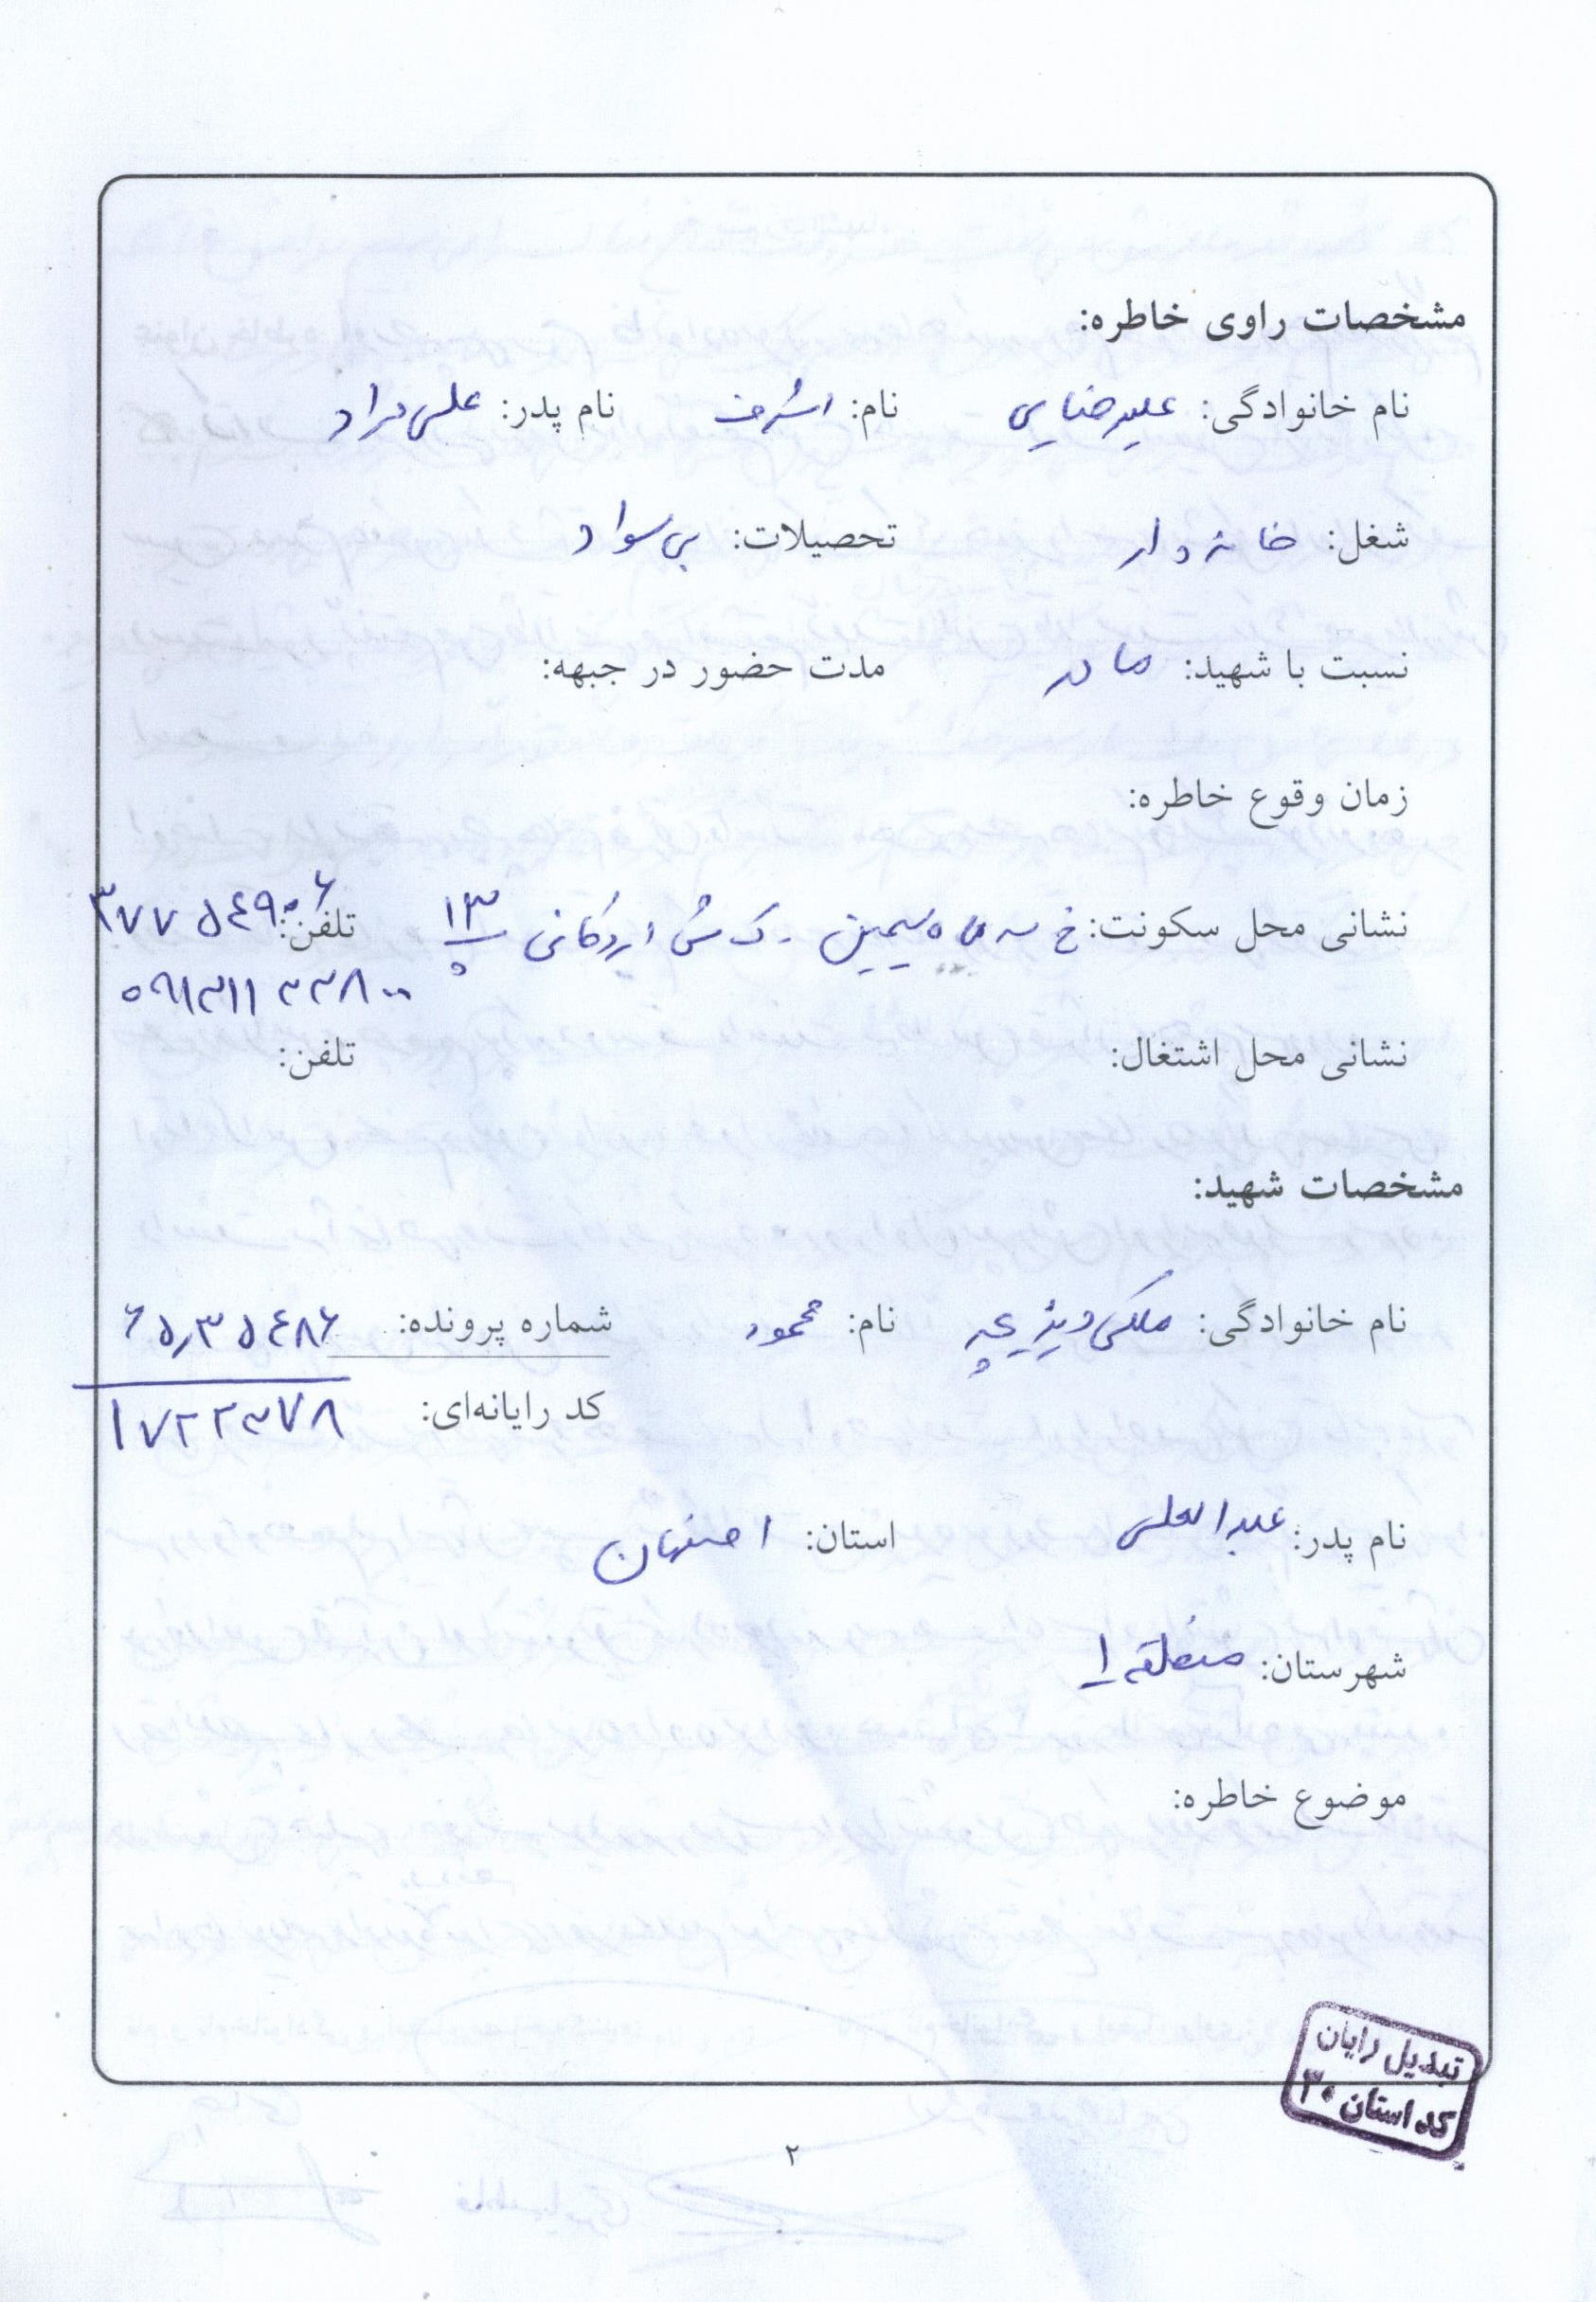 مشخصات راوی خاطره:
نام خانوادگی: علیرضایی نام: اشرف نام پدر: علی مراد
شغل: خانه دار تحصیلات: بی سواد
نسبت با شهید: مادر مدت حضور در جبهه:
زمان وقوع خاطره:
نشانی محل سکونت: خ سه راه سیمین - ک ش اردکانی پ ۱۳ تلفن: ۳۷۷۵۴۹۰۶
۰۹۱۳۱۱۳۳۸۰۰
نشانی محل اشتغال: تلفن:
مشخصات شهید:
نام خانوادگی: ملکی دیزیچه نام: محمود شماره پرونده: ۶۵٫۳۵۴۸۶
کد رایانه‌ای: ۱۷۲۲۳۷۸
نام پدر: عبدالعلی استان: اصفهان
شهرستان: منطقه ۱
موضوع خاطره:
تبدیل رایان
کد استان ۳۰
۲